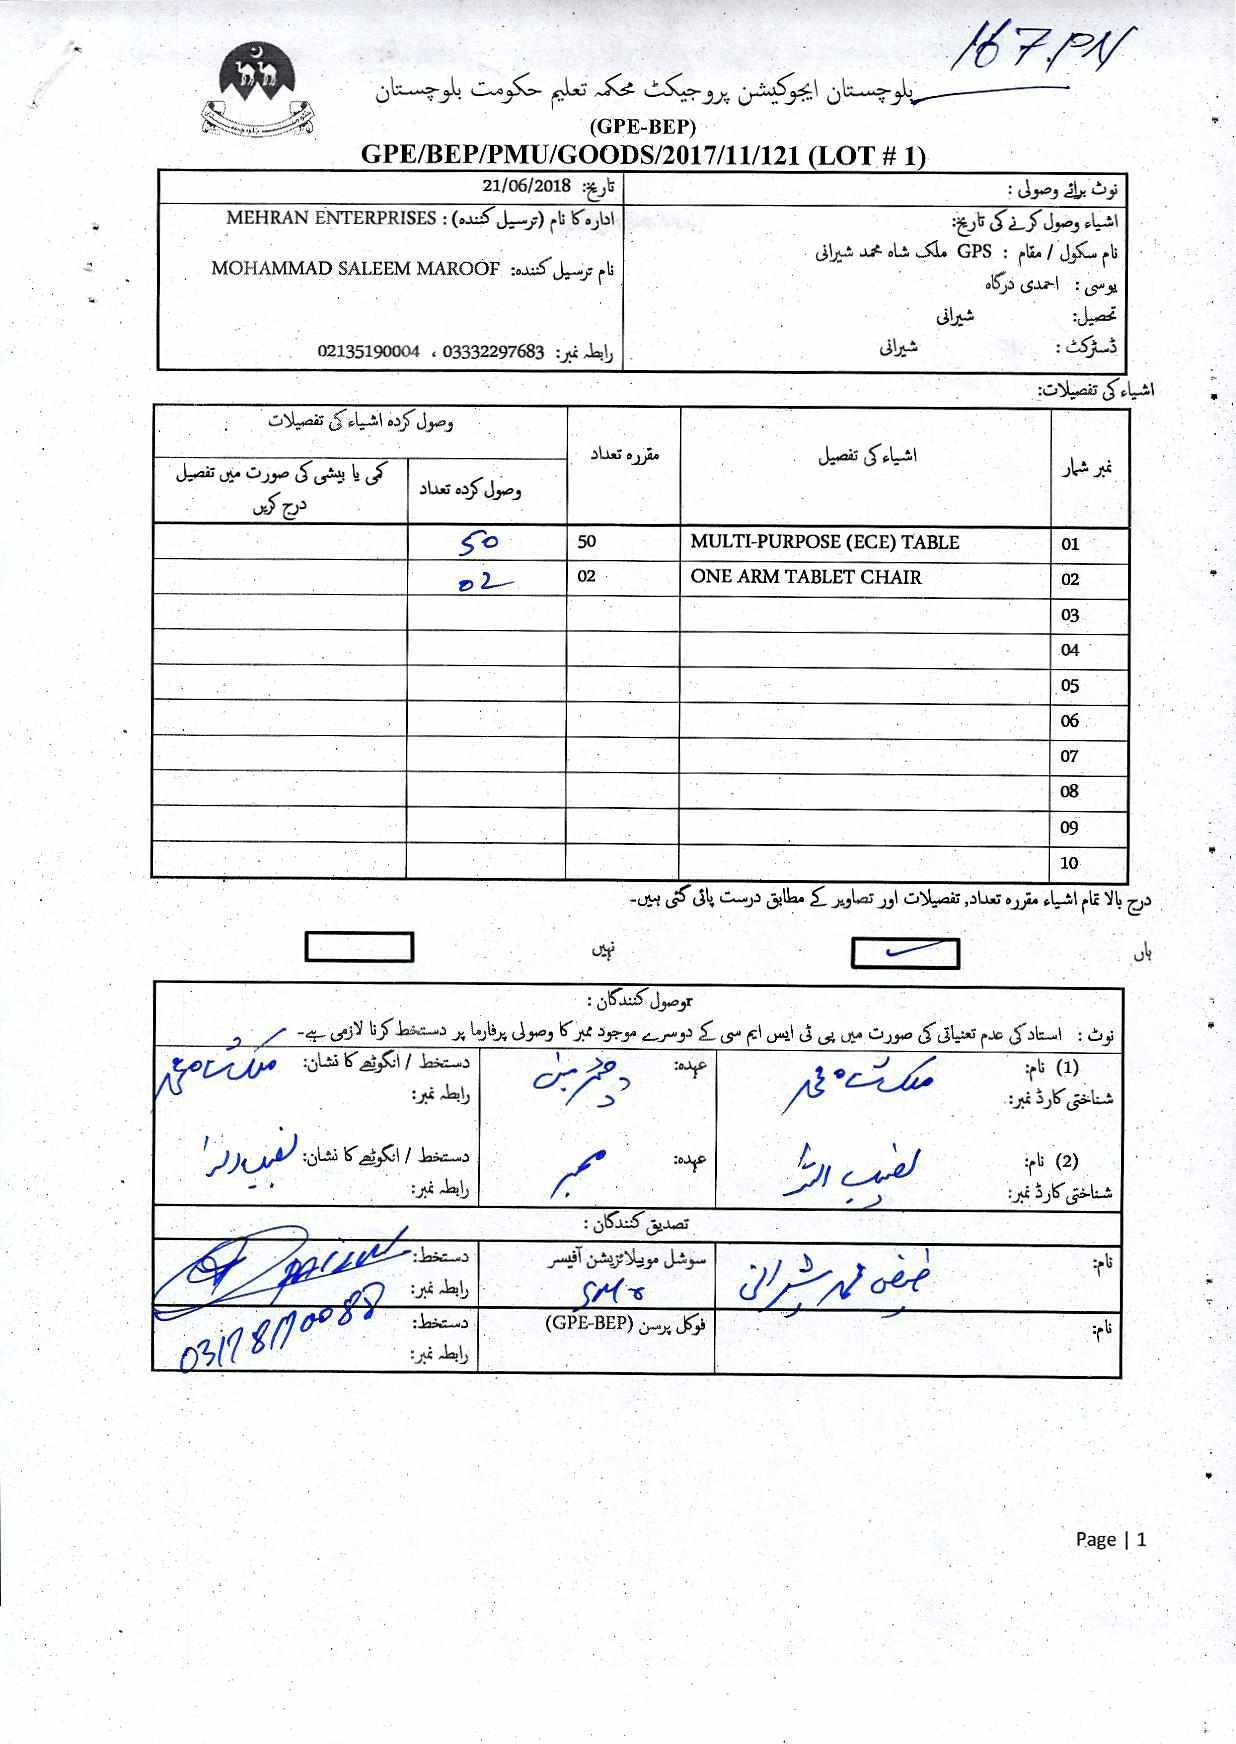 167.PN
بلوچستان ایجوکیشن پروجیکٹ محکمہ تعلیم حکومت بلوچستان
(GPE-BEP)
GPE/BEP/PMU/GOODS/2017/11/121 (LOT # 1)
نوٹ برائے وصولی :
تاریخ: 21/06/2018
اشیاء وصول کرنے کی تاریخ:
ادارہ کا نام (ترسیل کنندہ) : MEHRAN ENTERPRISES
نام سکول / مقام : GPS ملک شاہ محمد شیرانی
نام ترسیل کنندہ: MOHAMMAD SALEEM MAROOF
یوسی : احمدی درگاہ
تحصیل: شیرانی
ڈسٹرکٹ : شیرانی
رابطہ نمبر: 03332297683 ، 02135190004
اشیاء کی تفصیلات:
نمبر شمار اشیاء کی تفصیل مقررہ تعداد وصول کردہ اشیاء کی تفصیلات
وصول کردہ تعداد کمی یا بیشی کی صورت میں تفصیل درج کریں
01 MULTI-PURPOSE (ECE) TABLE 50 50
02 ONE ARM TABLET CHAIR 02 02
03
04
05
06
07
08
09
10
درج بالا تمام اشیاء مقررہ تعداد, تفصیلات اور تصاویر کے مطابق درست پائی گئی ہیں۔
ہاں نہیں
rوصول کنندگان :
نوٹ : استاد کی عدم تعیناتی کی صورت میں پی ٹی ایس ایم سی کے دوسرے موجود ممبر کا وصولی پرفارما پر دستخط کرنا لازمی ہے۔
(1) نام: ملک شاہ محمد عہدہ: دستخط / انگوٹھے کا نشان: ملک شاہ محمد
شناختی کارڈ نمبر: رابطہ نمبر:
(2) نام: نصیب اللہ عہدہ: ممبر دستخط / انگوٹھے کا نشان: نصیب اللہ
شناختی کارڈ نمبر: رابطہ نمبر:
تصدیق کنندگان :
نام: محمد شیرانی سوشل موبیلائزیشن آفیسر دستخط:
SMO رابطہ نمبر:
نام: فوکل پرسن (GPE-BEP) دستخط:
رابطہ نمبر: 03178170088
Page | 1